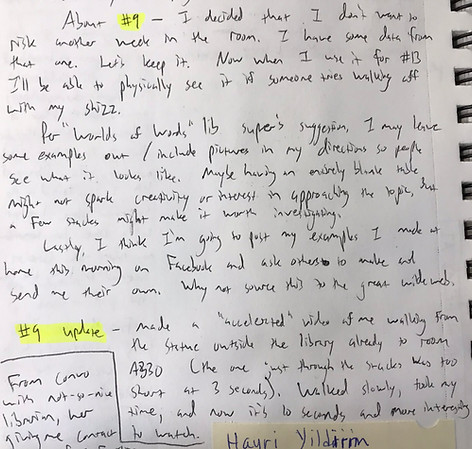 About #9 - I decided that I don't want to
risk another week in the room. I have some data from
that one. Let's keep it. Now when I use it for #13
I'll be able to physically see it if someone tries walking off
with my shizz.
Per "Worlds of Words" lib super's suggestion, I may leave
some examples out / include pictures in my directions so people
see what it looks like. Maybe having an entirely blank table
might not spark creativity or interest in approaching the topic, but
a few stacks might make it worth investigating.
Lastly, I think I'm going to post my examples I made at
home this morning on Facebook and ask others to make and
send me their own. Why not source this to the great wide web.
#9 update - made a "accelerated" video of me walking from
the statue outside the library already to room
A330 (the one just through the stacks was too
short at 3 seconds). Walked slowly, took my
time, and now it's 10 seconds and more interesting
to watch.
From convo
with not-so-nice
librarian, her
giving me contact
Hayri Yildirim